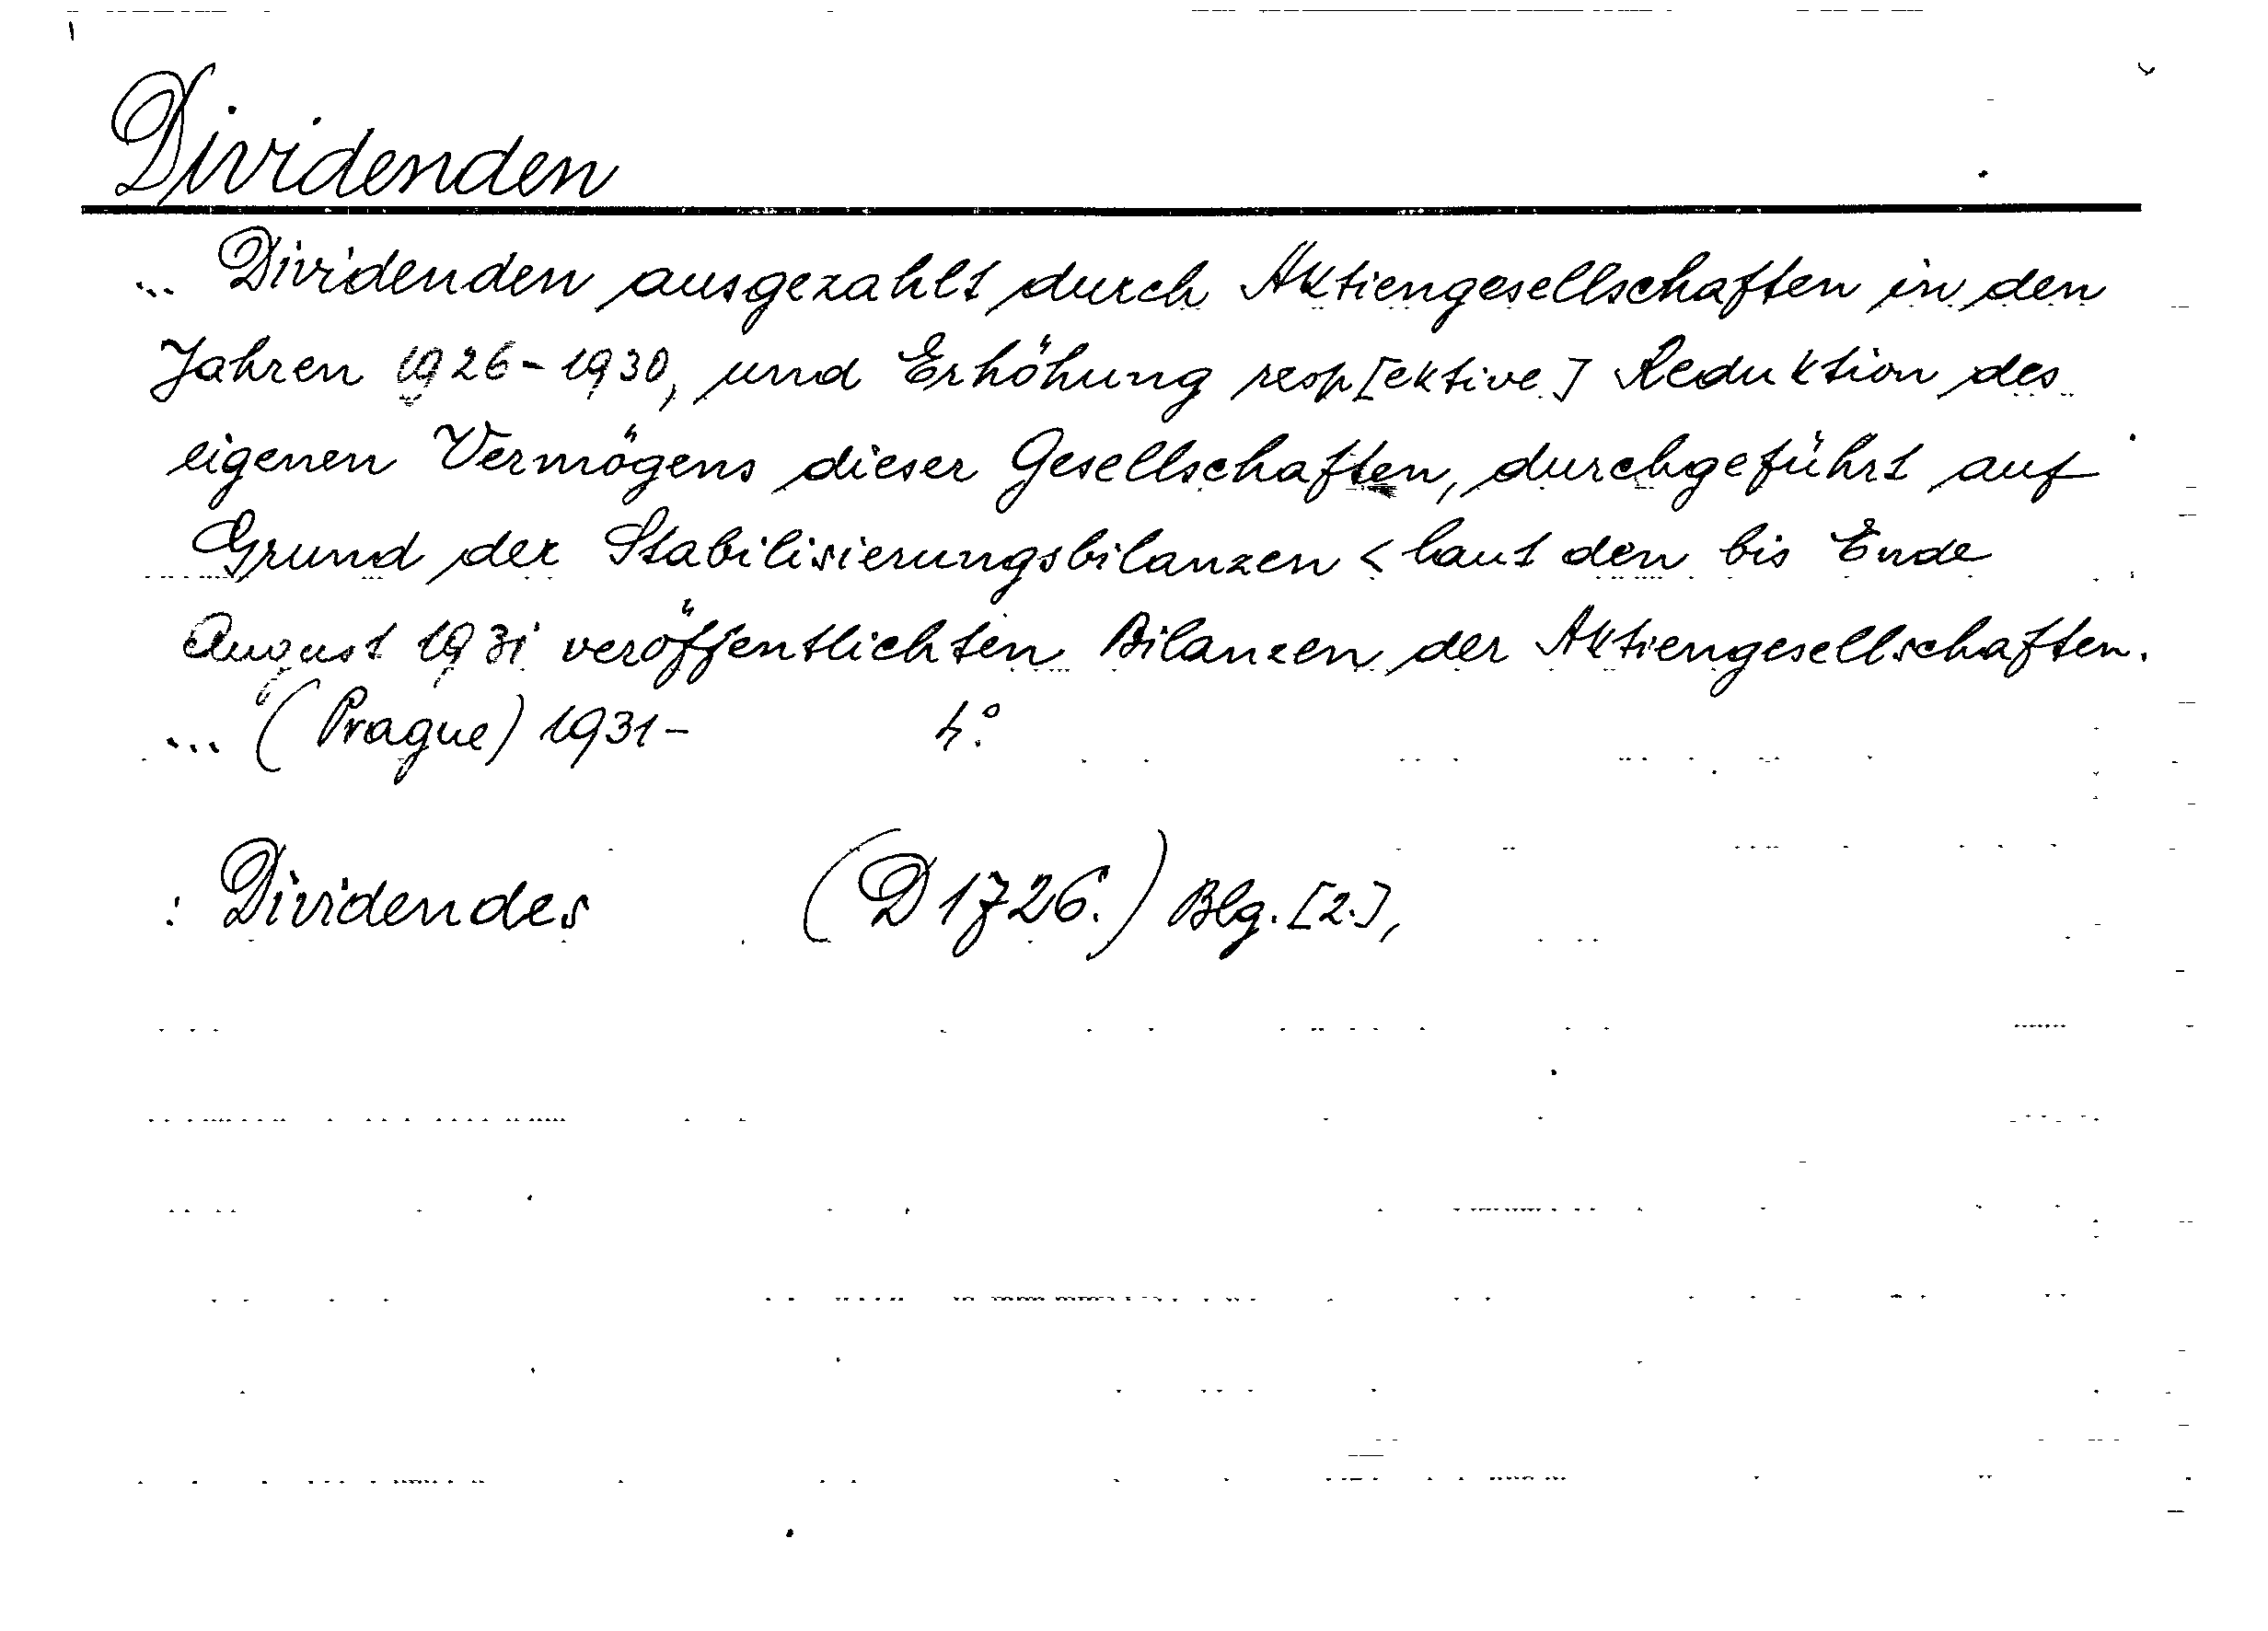 Dividenden
... Dividenden ausgezahlt durch Aktiengesellschaften in den
Jahren 1926-1930, und Erhöhung resp[ektive] Reduktion des
eigenen Vermögens dieser Gesellschaften, durchgeführt auf
Grund der Stabilisierungsbilanzen < laut den bis Ende
August 1931 veröffentlichten Bilanzen der Aktiengesellschaften.
... (Prague) 1931- 4°.
: Dividendes (D 1726.) Blg. [2.],